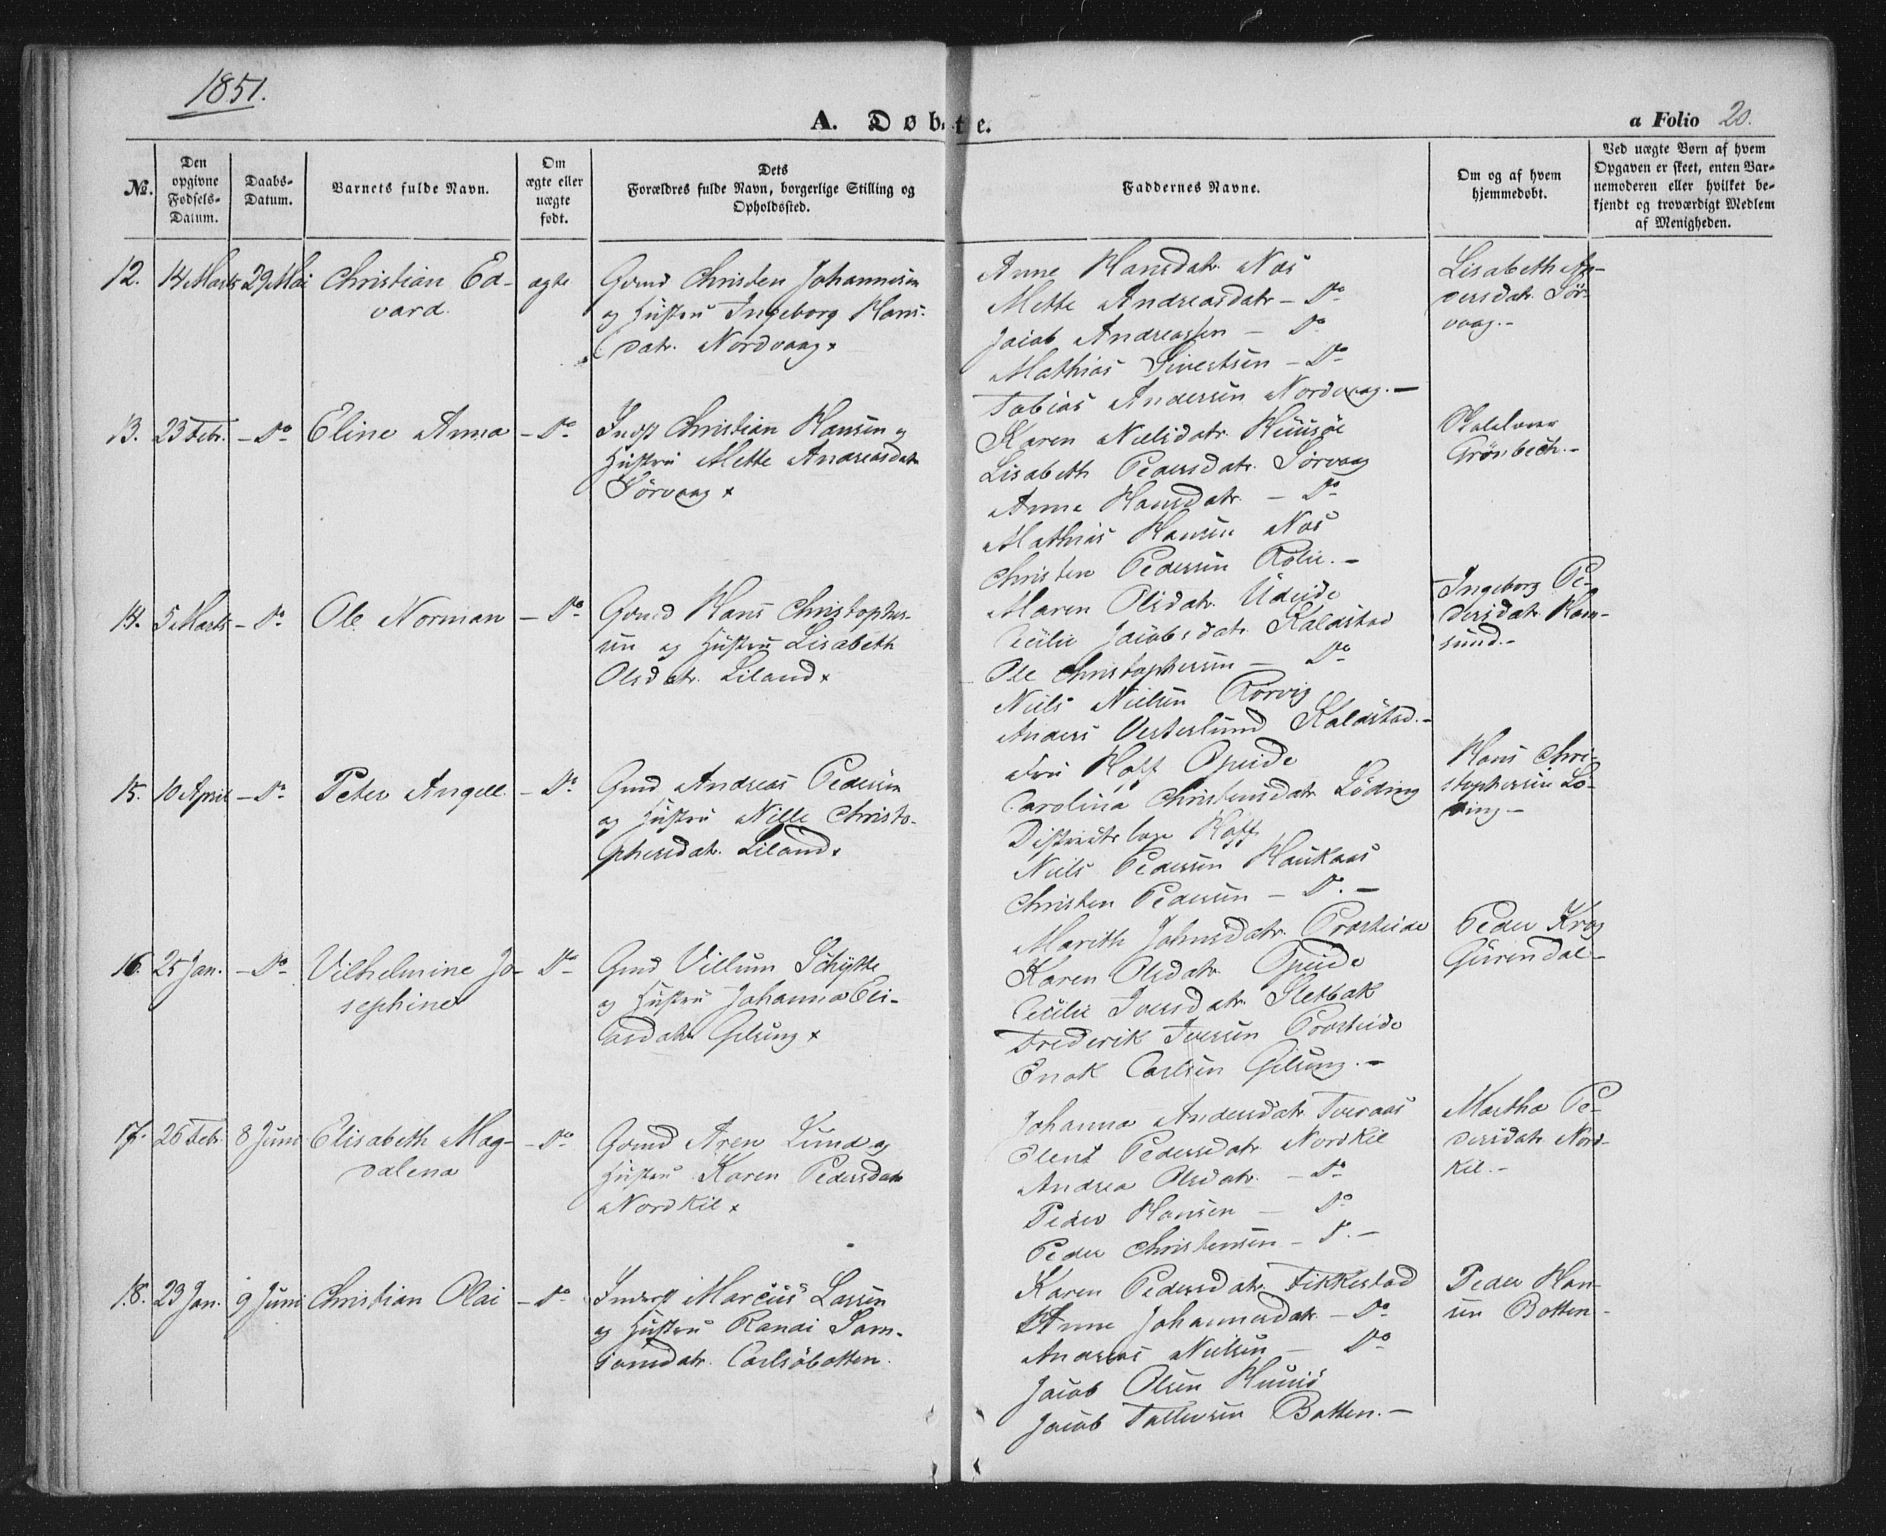 1851.
A. Døbte.
a Folio 20.
№.
Den opgivne Fødsels-Datum.
Daabs-Datum.
Barnets fulde Navn.
Om ægte eller uægte født.
Dets Forældres fulde Navn, borgerlige Stilling og Opholdssted.
Faddernes Navne.
Om og af hvem hjemmedøbt.
Ved uægte Børn af hvem Opgaven er skeet, enten Barnemoderen eller hvilket bekjendt og troværdigt Medlem af Menigheden.
12. 14 Marts 29 Mai Christian Ed-
vard.
ægte
Gmd Christen Johannesen
og Hustru Ingeborg Hans-
datr. Nordvaag
Anne Hansdatr. Nos
Mette Andreasdatr - Do
Jacob Andreassen - Do
Mathias Sivertsen - Do
Tobias Andersen Nordvaag. -
Lisabeth An-
dersdatr. Sør-
vaag. -
13. 23 Febr. - Do Eline Anna - Do
Indst Christian Hansen og
Hustru Mette Andreasdatr
Sørvaag
Karen Nielsdatr.
Lisabeth Pedersdatr. Sørvaag
Anne Hansdatr. - Do
Mathias Hansen Nos
Christen Pedersen Rølie. -
Grönbech. -
14. 5 Marts - Do Ole Norman - Do
Gmd Hans Christophers-
en og Hustru Lisabeth
Olsdatr. Liland
Maren Olsdatr.
Cecilie Jacobsdatr. Kaldstad
Ole Christophersen - Do
Niels Nielsen Rørvig
Anders Vesterlund Kaldstad. -
Ingeborg Pe-
dersdatr. Ram-
sund. -
15. 10 April - Do Peter Angell. - Do
Gmd Andreas Pedersen
og Hustru Nille Christo-
phersdatr. Liland
Fru Hoff Opeide
Carolina Christensdatr. Løding
Districtslæge Hoff
Niels Pedersen Haukaas
Christen Pedersen - Do. -
Hans Chri-
stophersen Lø-
ding -
16. 25 Jan. - Do Vilhelmine Jo-
sephine
- Do
Gmd Villum Schytte
og Hustru Johanna Eli-
asdatr Gilsung
Marith Johnsdatr. Prosteide
Karen Olsdatr. Opeide
Cecilie Iversdatr. Sletbak
Frederik Iversen Prosteide
Enok Carlsen Gilsung. -
Peder Krog
Gürendal -
17. 26 Febr. 8 Juni Elisabeth Mag-
dalena
- Do
Gmd Aren Lund og
Hustru Karen Pedersdatr
Nordkil
Johanna Andersdatr. Tveraas
Elen Pedersdatr Nordkil
Andrea Olsdatr. - Do
Peder Hansen - Do
Peder Christensen - D. -
Martha Pe-
dersdatr. Nord-
kil. -
18. 23 Jan. 9 Juni Christian Olai - Do
Inderst Marcus Larsen
og Hustru Randi Sam-
sonsdatr. Carlsøbotten.
Karen Pedersdatr. Fikkestad
Anne Johannesdatr. - Do
Andreas Nielsen - Do
Jacob Olsen
Jacob Tollevsen Botten. -
Peder Han-
sen Botten -